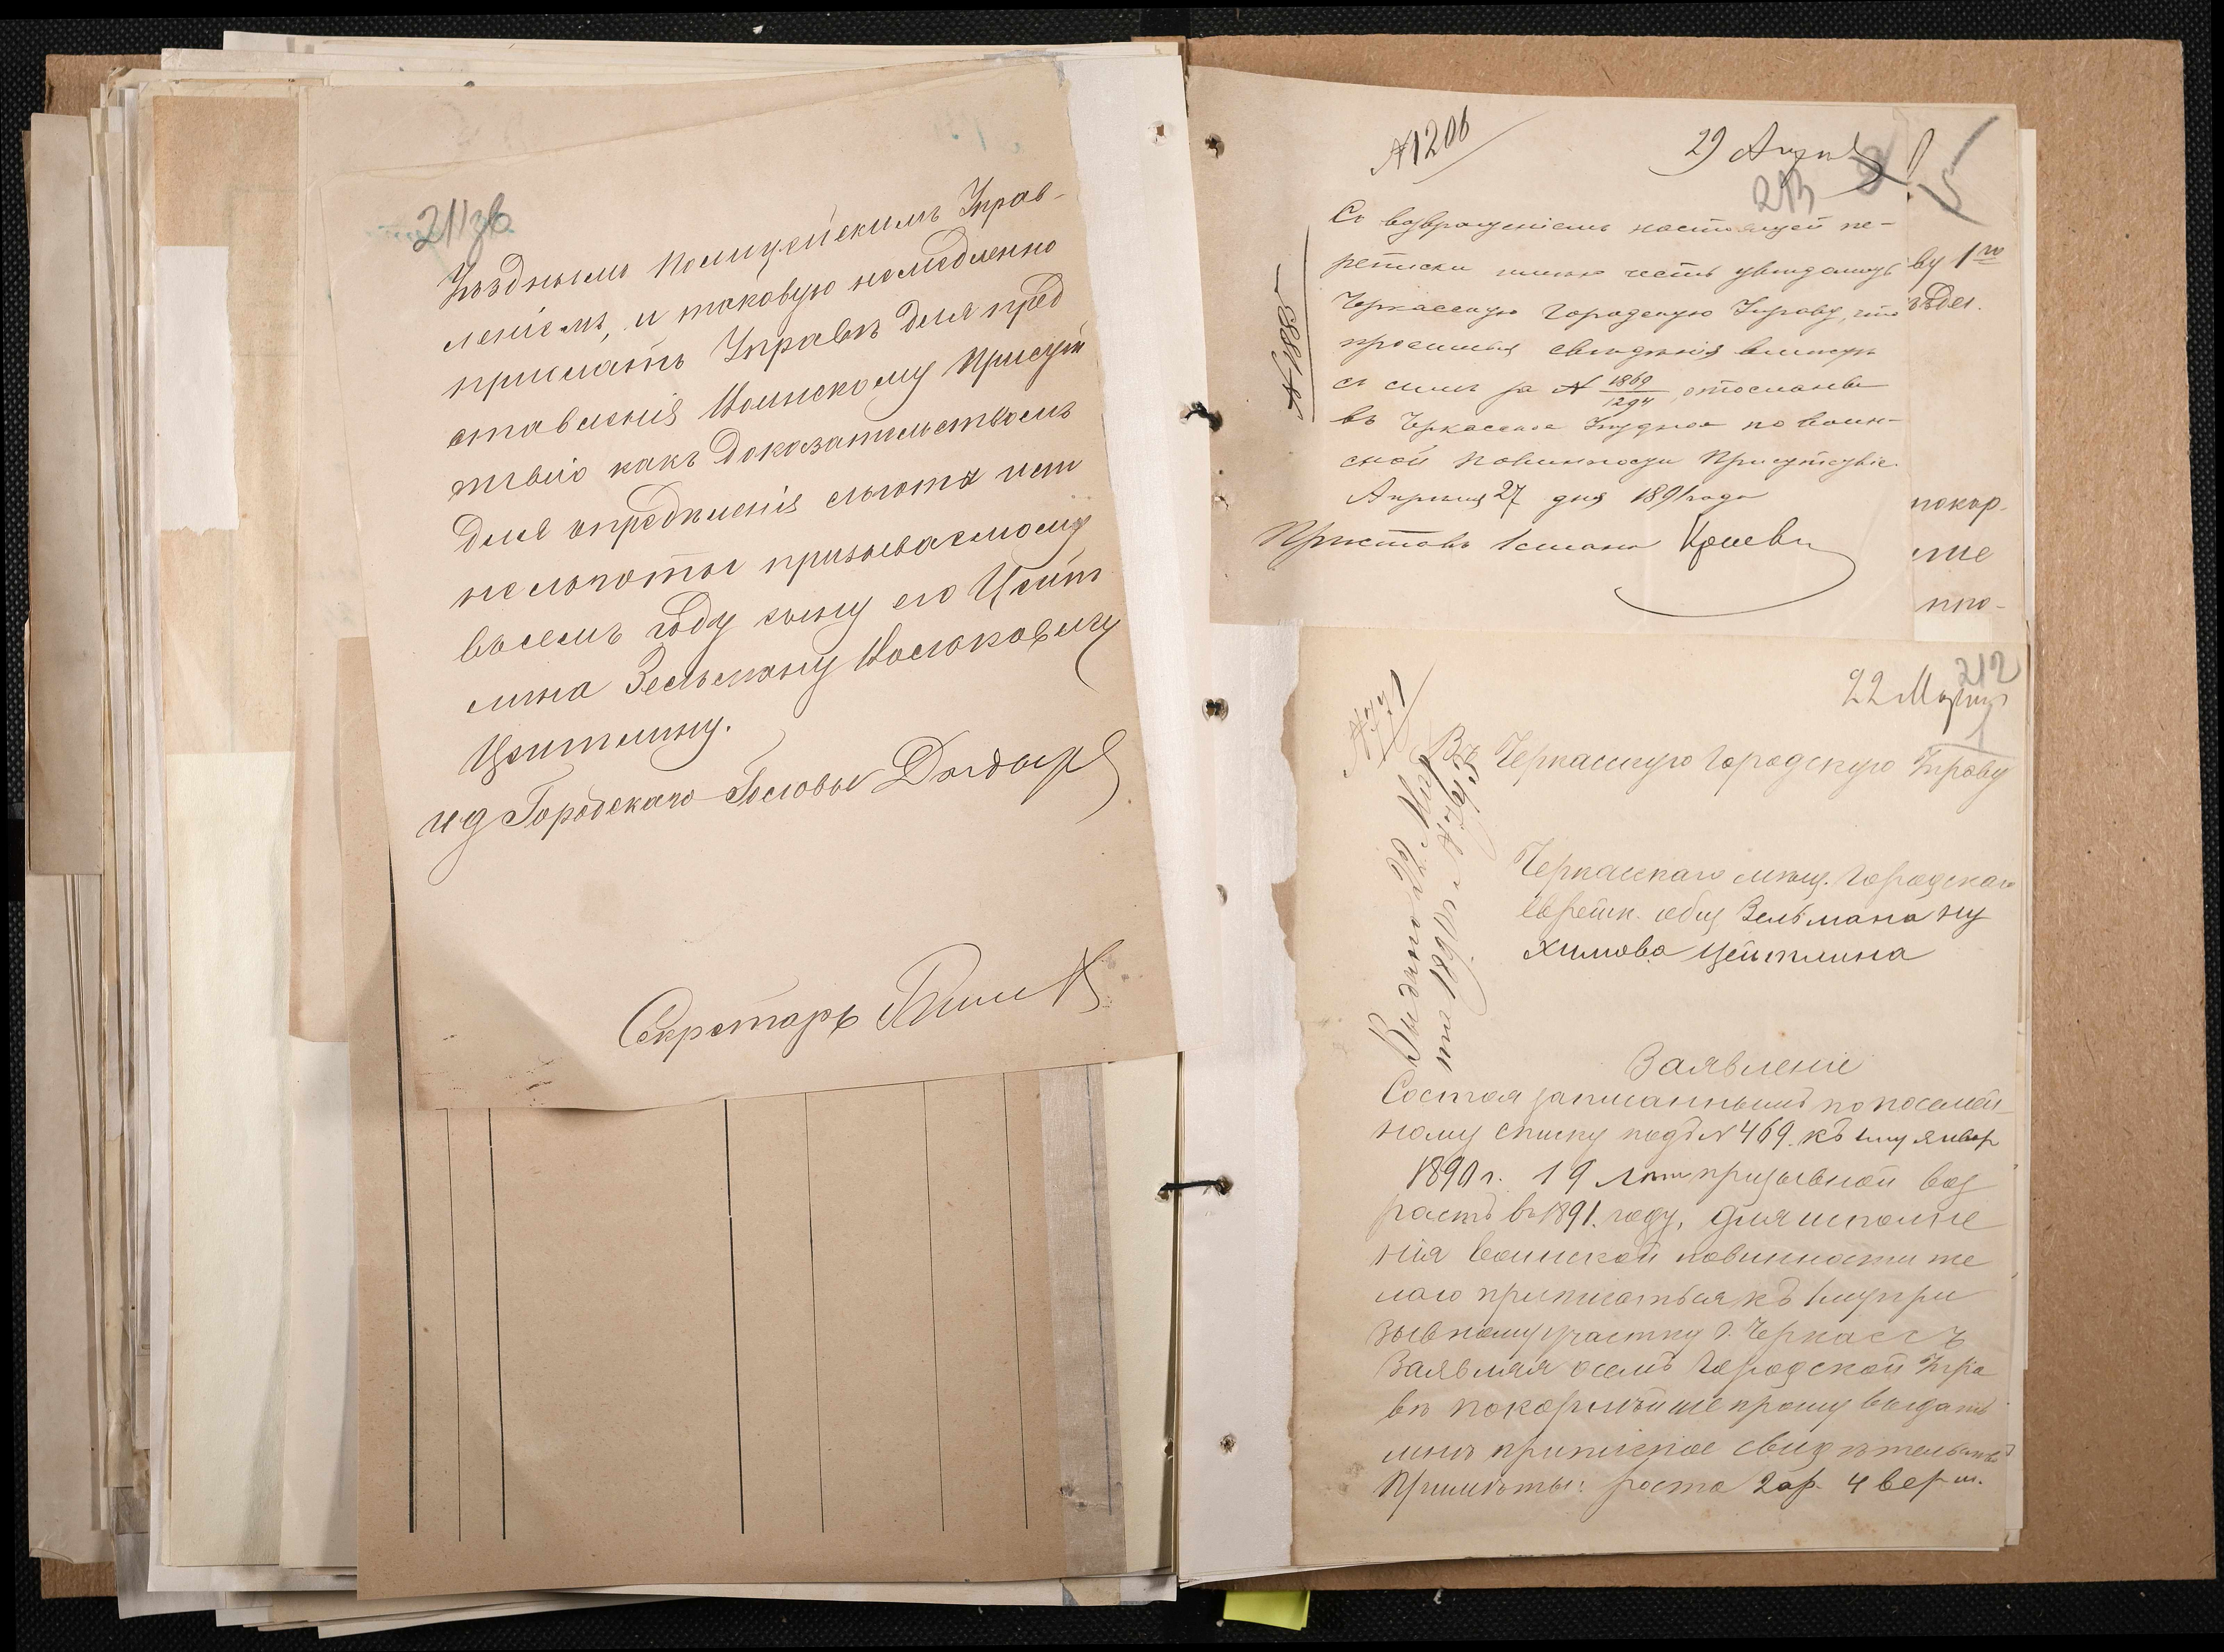 211зв
Уѣзднымъ Полицейскимъ Управ-
леніемъ, и таковую немедленно
прислать Управѣ для пред
ставленія Воинскому Присут
твію какъ доказательствомъ
для опредѣленія льготы или
нельготы призываемому
въ семъ году сыну его Цейт
лина Зельману Иосиоковичу
Цейтлину.
ид Городскаго Головы
Секретарь
№1206
29 Апрѣл
213
5
№1885
Съ возвращеніемъ настоящей пе-
реписки имѣю честь увѣдомить
Черкасскую Городскую Управу, что
просимыя свѣдѣнія вмѣстѣ
съ симъ за № 1869/1294 отосланы
въ Черкасское Уѣздное по воин-
ской повинности Присутствіе.
Апрѣля 27 дня 1891 года
Приставъ 1 стана
ву 1го
покор-
212
22 Марта
1
№771
Въ Черкасскую Городскую Управу
Черкасскаго мѣщ. Городскаго
Еврейск. общ Зельмана Ну
химова Цейтлина
Выдано
1890 г. № 795
Заявленіе
Состоя записаннымъ по посемей-
ному списку подъ № 469. къ 1му январ
1890 г. 19 лѣтъ призывной воз
растъ въ 1891. году, для исполне
нія воинской повинности же
лаю приписаться къ 1му при
зывному участку г. Черкассъ
Заявляя о семъ Городской Упра
вѣ покорнѣйше прошу выдать
мнѣ приписное свидѣтельство
Примѣты: роста 2 ар. 4 верш.